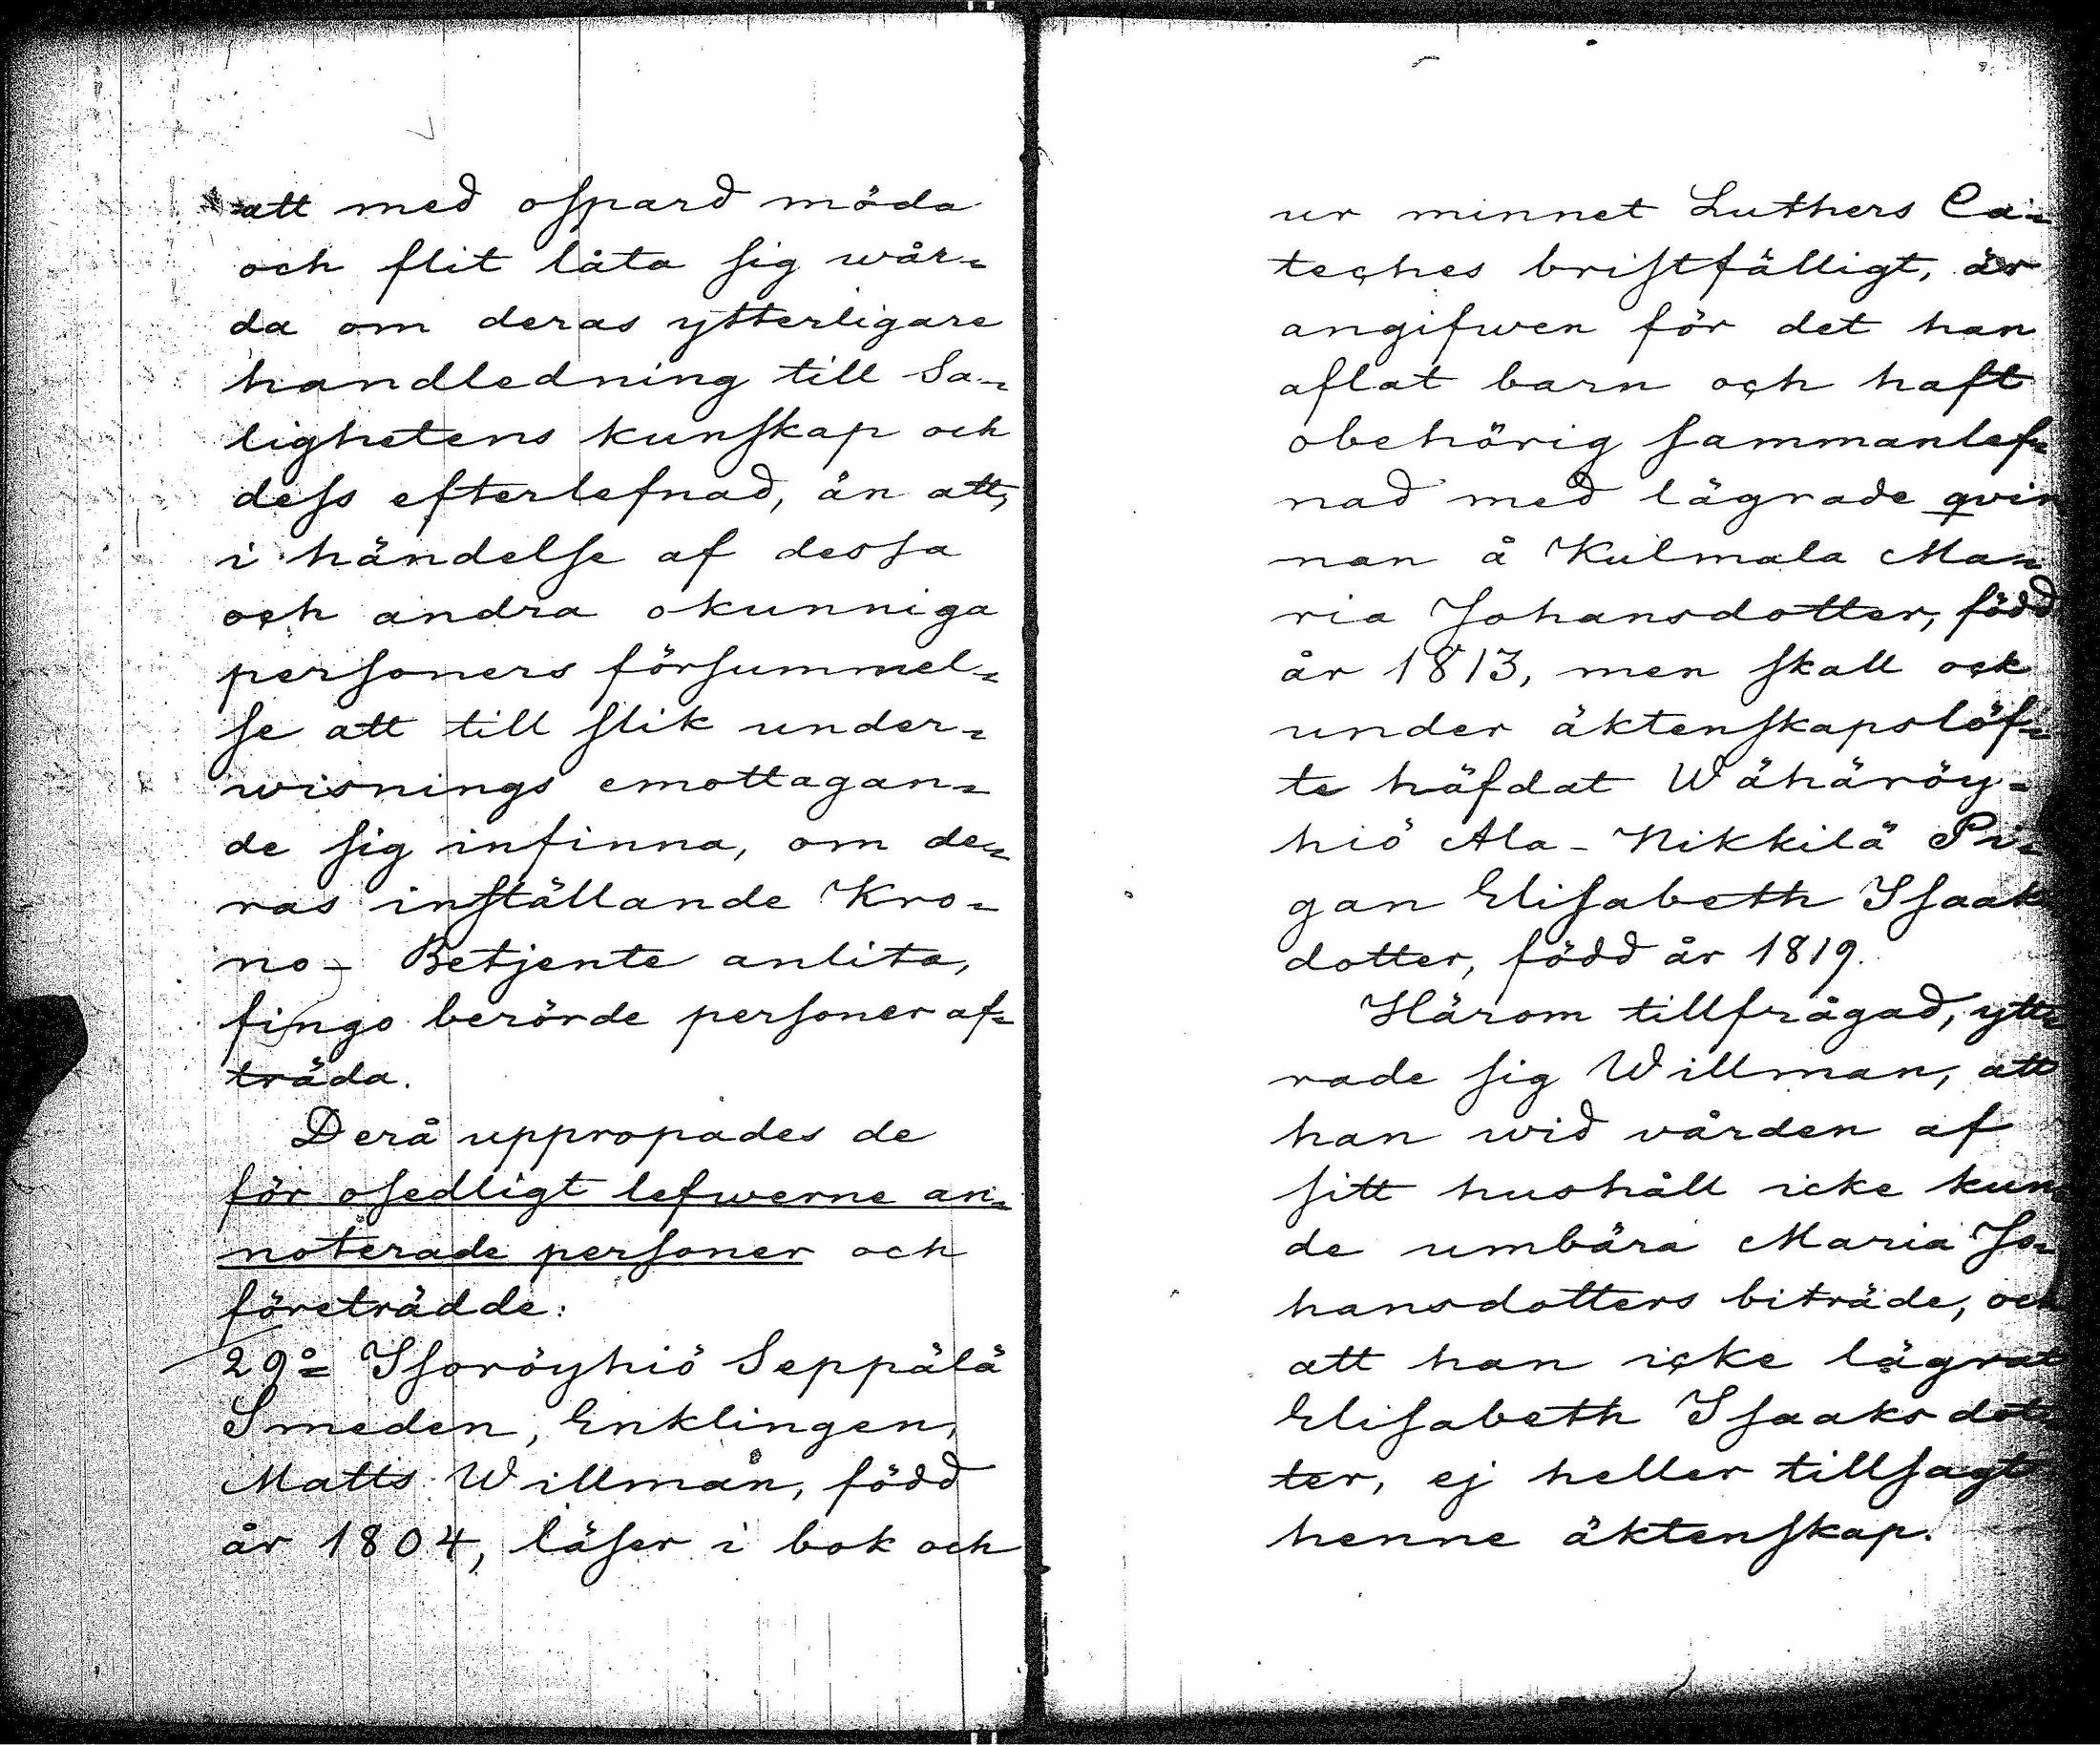 att med ospard möda
och flit låta sig wår-
da om deras ytterligare
handledning till Sa-
lighetens kunskap och
dess efterlefnad, än att,
i händelse af dessa
och andra okunniga
personers försummel-
se att till slik under-
wisnings emottagan-
de sig infinna, om de-
ras inställande Kro-
no- Betjente anlita,
fingo berörde personer af-
träda.
Derå uppropades de
för osedligt lefwerne an-
noterade personer och
företrädde:
29º Isoröyhiö Seppälä
Smeden, Enklingen,
Matts Willman, född
år 1804, läser i bok och
ur minnet Luthers Ca-
teches bristfälligt, är
angifwen för det han
aflat barn och haft
obehörig sammanlef-
nad med lägrade qvin
nan å Kulmala Ma-
ria Johansdotter, född
år 1813, men skall ock
under äktenskapslöf-
te häfdat Wähäröy-
hiö Ala-Nikkilä Pi-
gan Elisabeth Isaak
dotter, född år 1819.
Härom tillfrågad, ytt-
rade sig Willman, att
han wid vården af
sitt hushåll icke kun-
de umbära Maria Jo-
hansdotters biträde, och
att han icke lägrat
Elisabeth Isaaksdot-
ter, ej heller tillsagt
henne äktenskap.